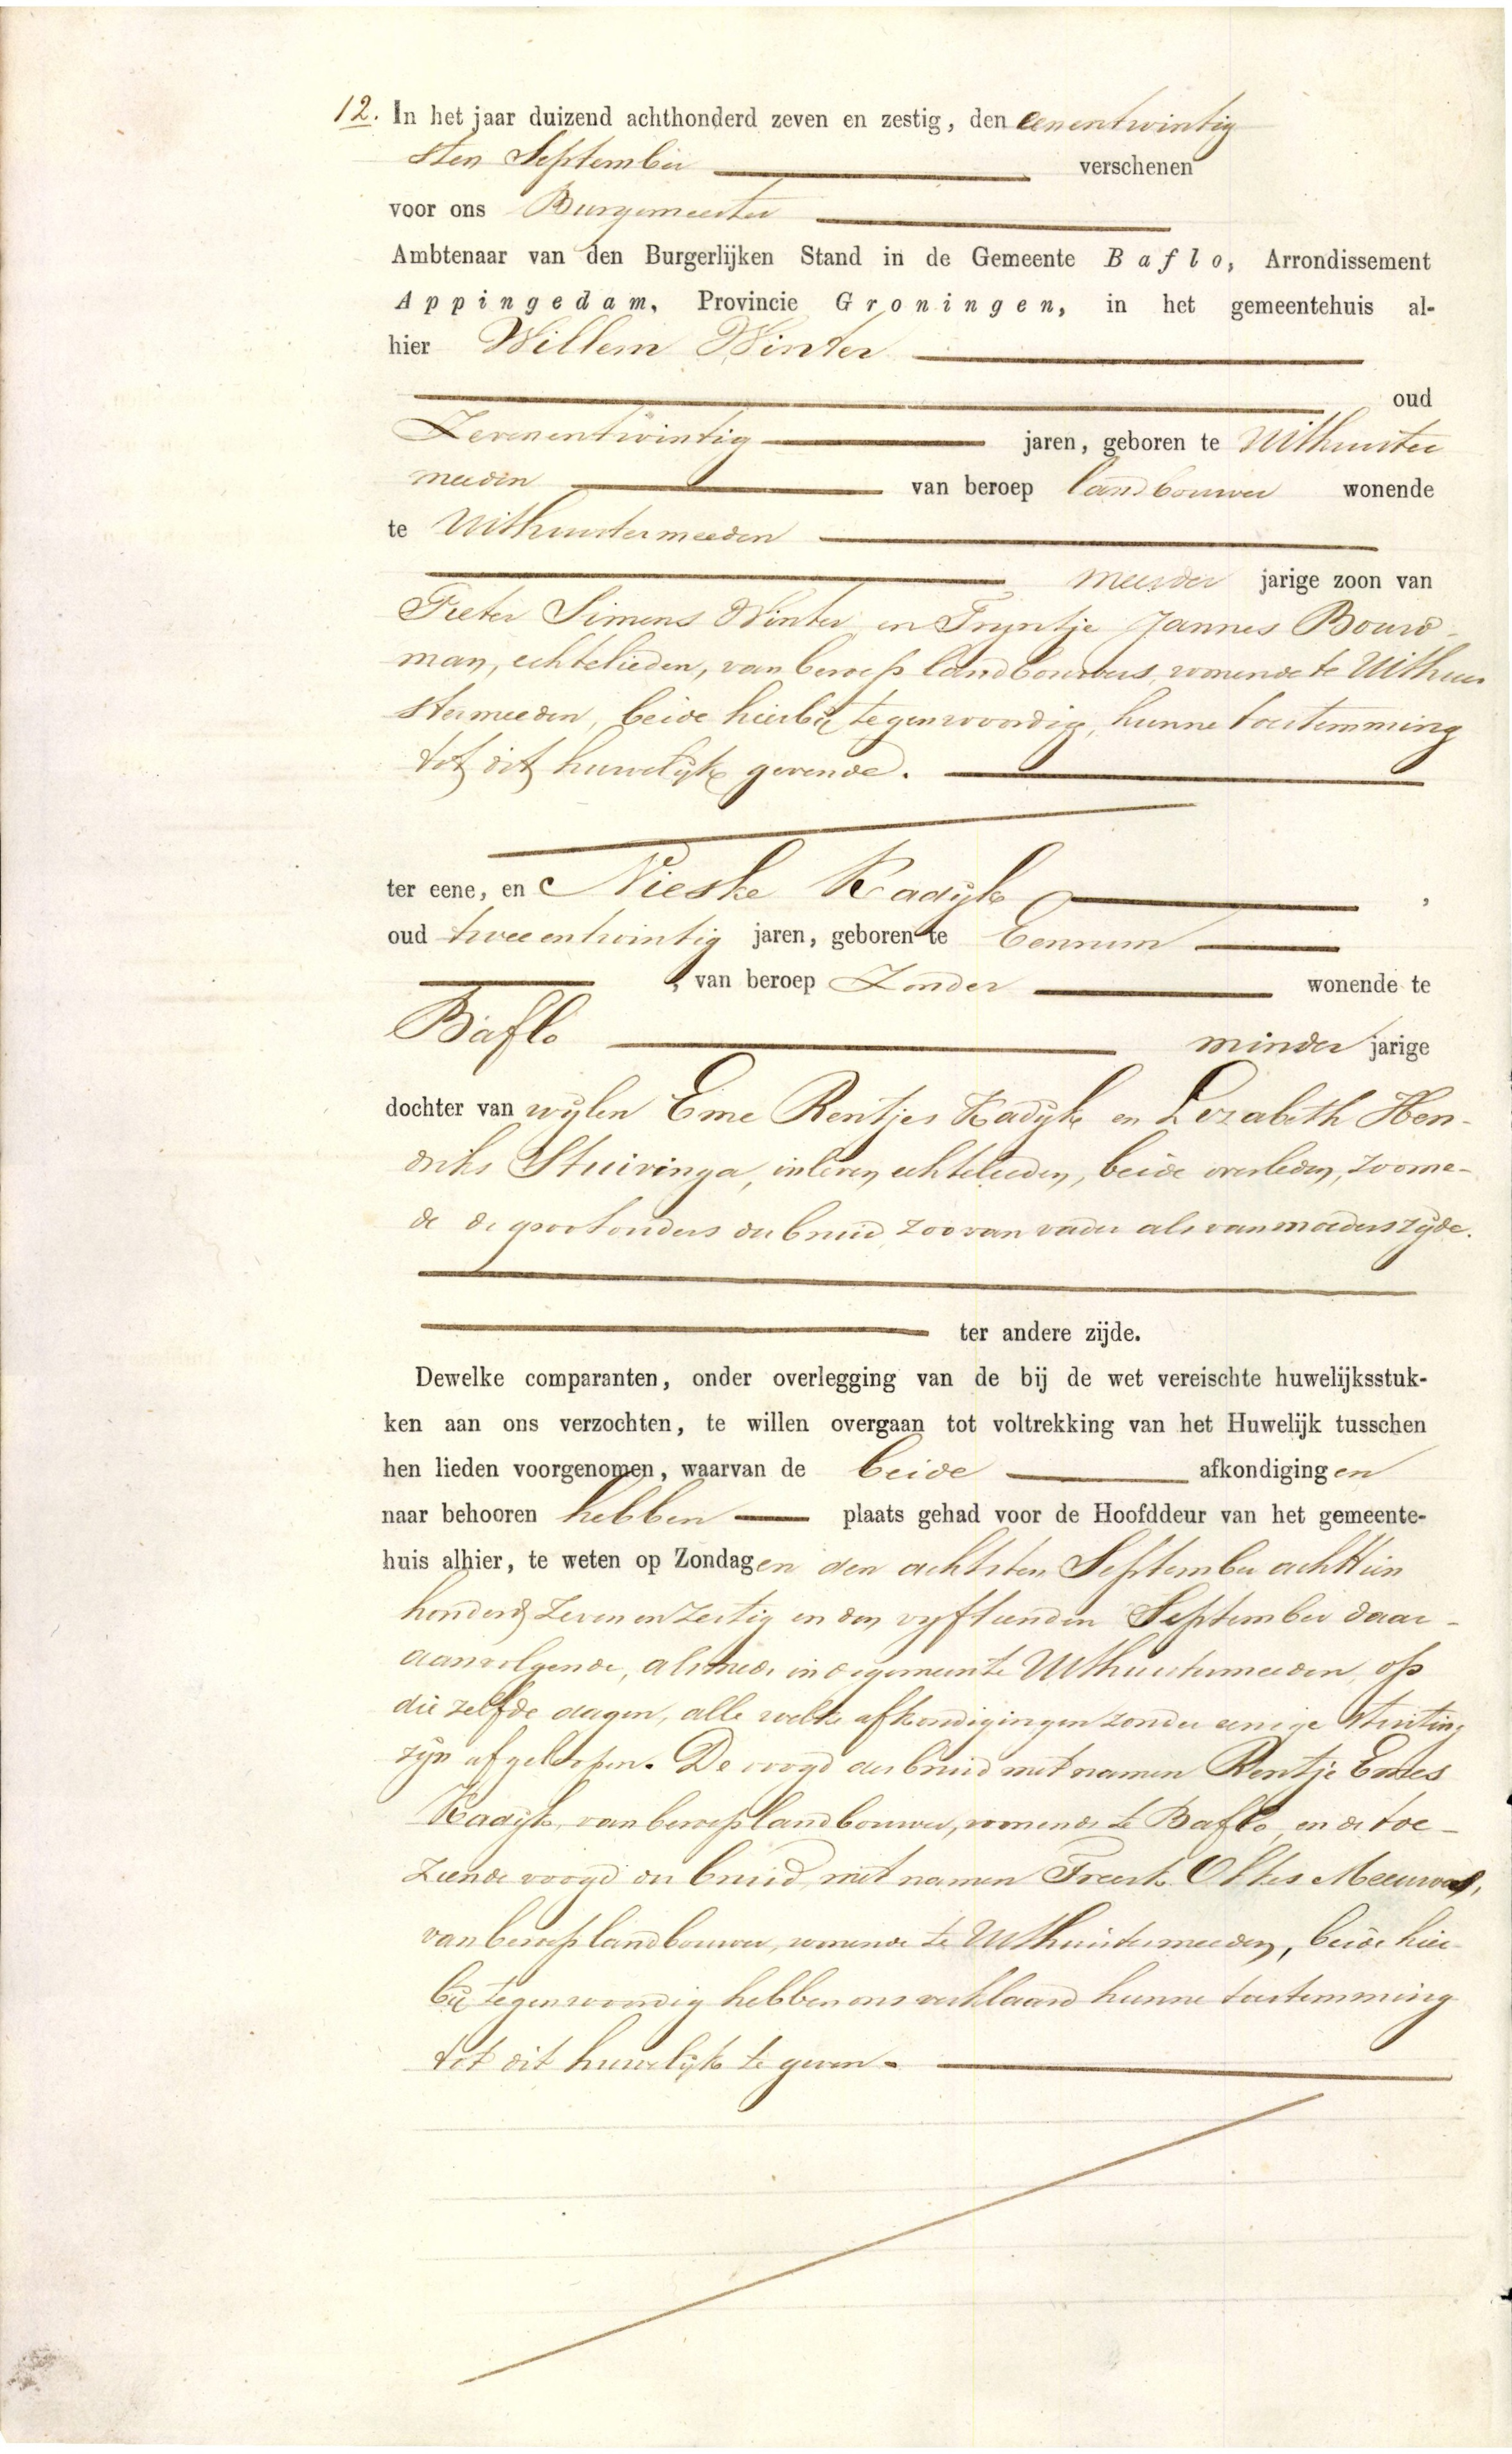 12. In het jaar duizend achthonderd zeven en zestig, den eenentwintig
sten September verschenen
voor ons Burgemeester
Ambtenaar van den Burgerlijken Stand in de Gemeente Baflo, Arrondissement
Appingedam, Provincie Groningen, in het gemeentehuis al-
hier Willem Winter
oud
Zevenentwintig jaren, geboren te Uithuister
meeden van beroep landbouwer wonende
te Uithuistermeeden
meerder jarige zoon van
Pieter Simens Winter en Trijntje Jannes Bouw-
man, echtelieden, van beroep landbouwers, wonende te Uithui
stermeeden, beide hierbij tegenwoordig, hunne toestemming
tot dit huwelijk gevende.
ter eene, en Nieske Kadijk,
oud twee en twintig jaren, geboren te Eenrum
, van beroep Zonder wonende te
Baflo minder jarige
dochter van wijlen Eme Rentjes Kadijk en Lezabeth Hen-
driks Stuivinga, in leven echtelieden, beide overleden, zoome-
de de grootouders der bruid, zoo van vader als van moederszijde.
ter andere zijde.
Dewelke comparanten, onder overlegging van de bij de wet vereischte huwelijksstuk-
ken aan ons verzochten, te willen overgaan tot voltrekking van het Huwelijk tusschen
hen lieden voorgenomen, waarvan de beide afkondigingen
naar behooren hebben plaats gehad voor de Hoofddeur van het gemeente-
huis alhier, te weten op Zondagen den achtsten September achttien
honderd zeven en zestig en den vyftienden September daar-
aanvolgende, alsmede in de gemeente Uithuistermeeden op
die zelfde dagen, alle welke afkondigingen zonder eenige stuiting
zijn afgeloopen. De voogd der bruid met namen Rentje Emes
Kadijk, van beroep landbouwer, wonende te Baflo, en de toe-
ziende voogd der bruid, met namen Freerk Oltes Meeuwes,
van beroep landbouwer, wonende te Uithuistermeeden, beide hier
bij tegenwoordig hebben ons verklaard hunne toestemming
tot dit huwelijk te geven.